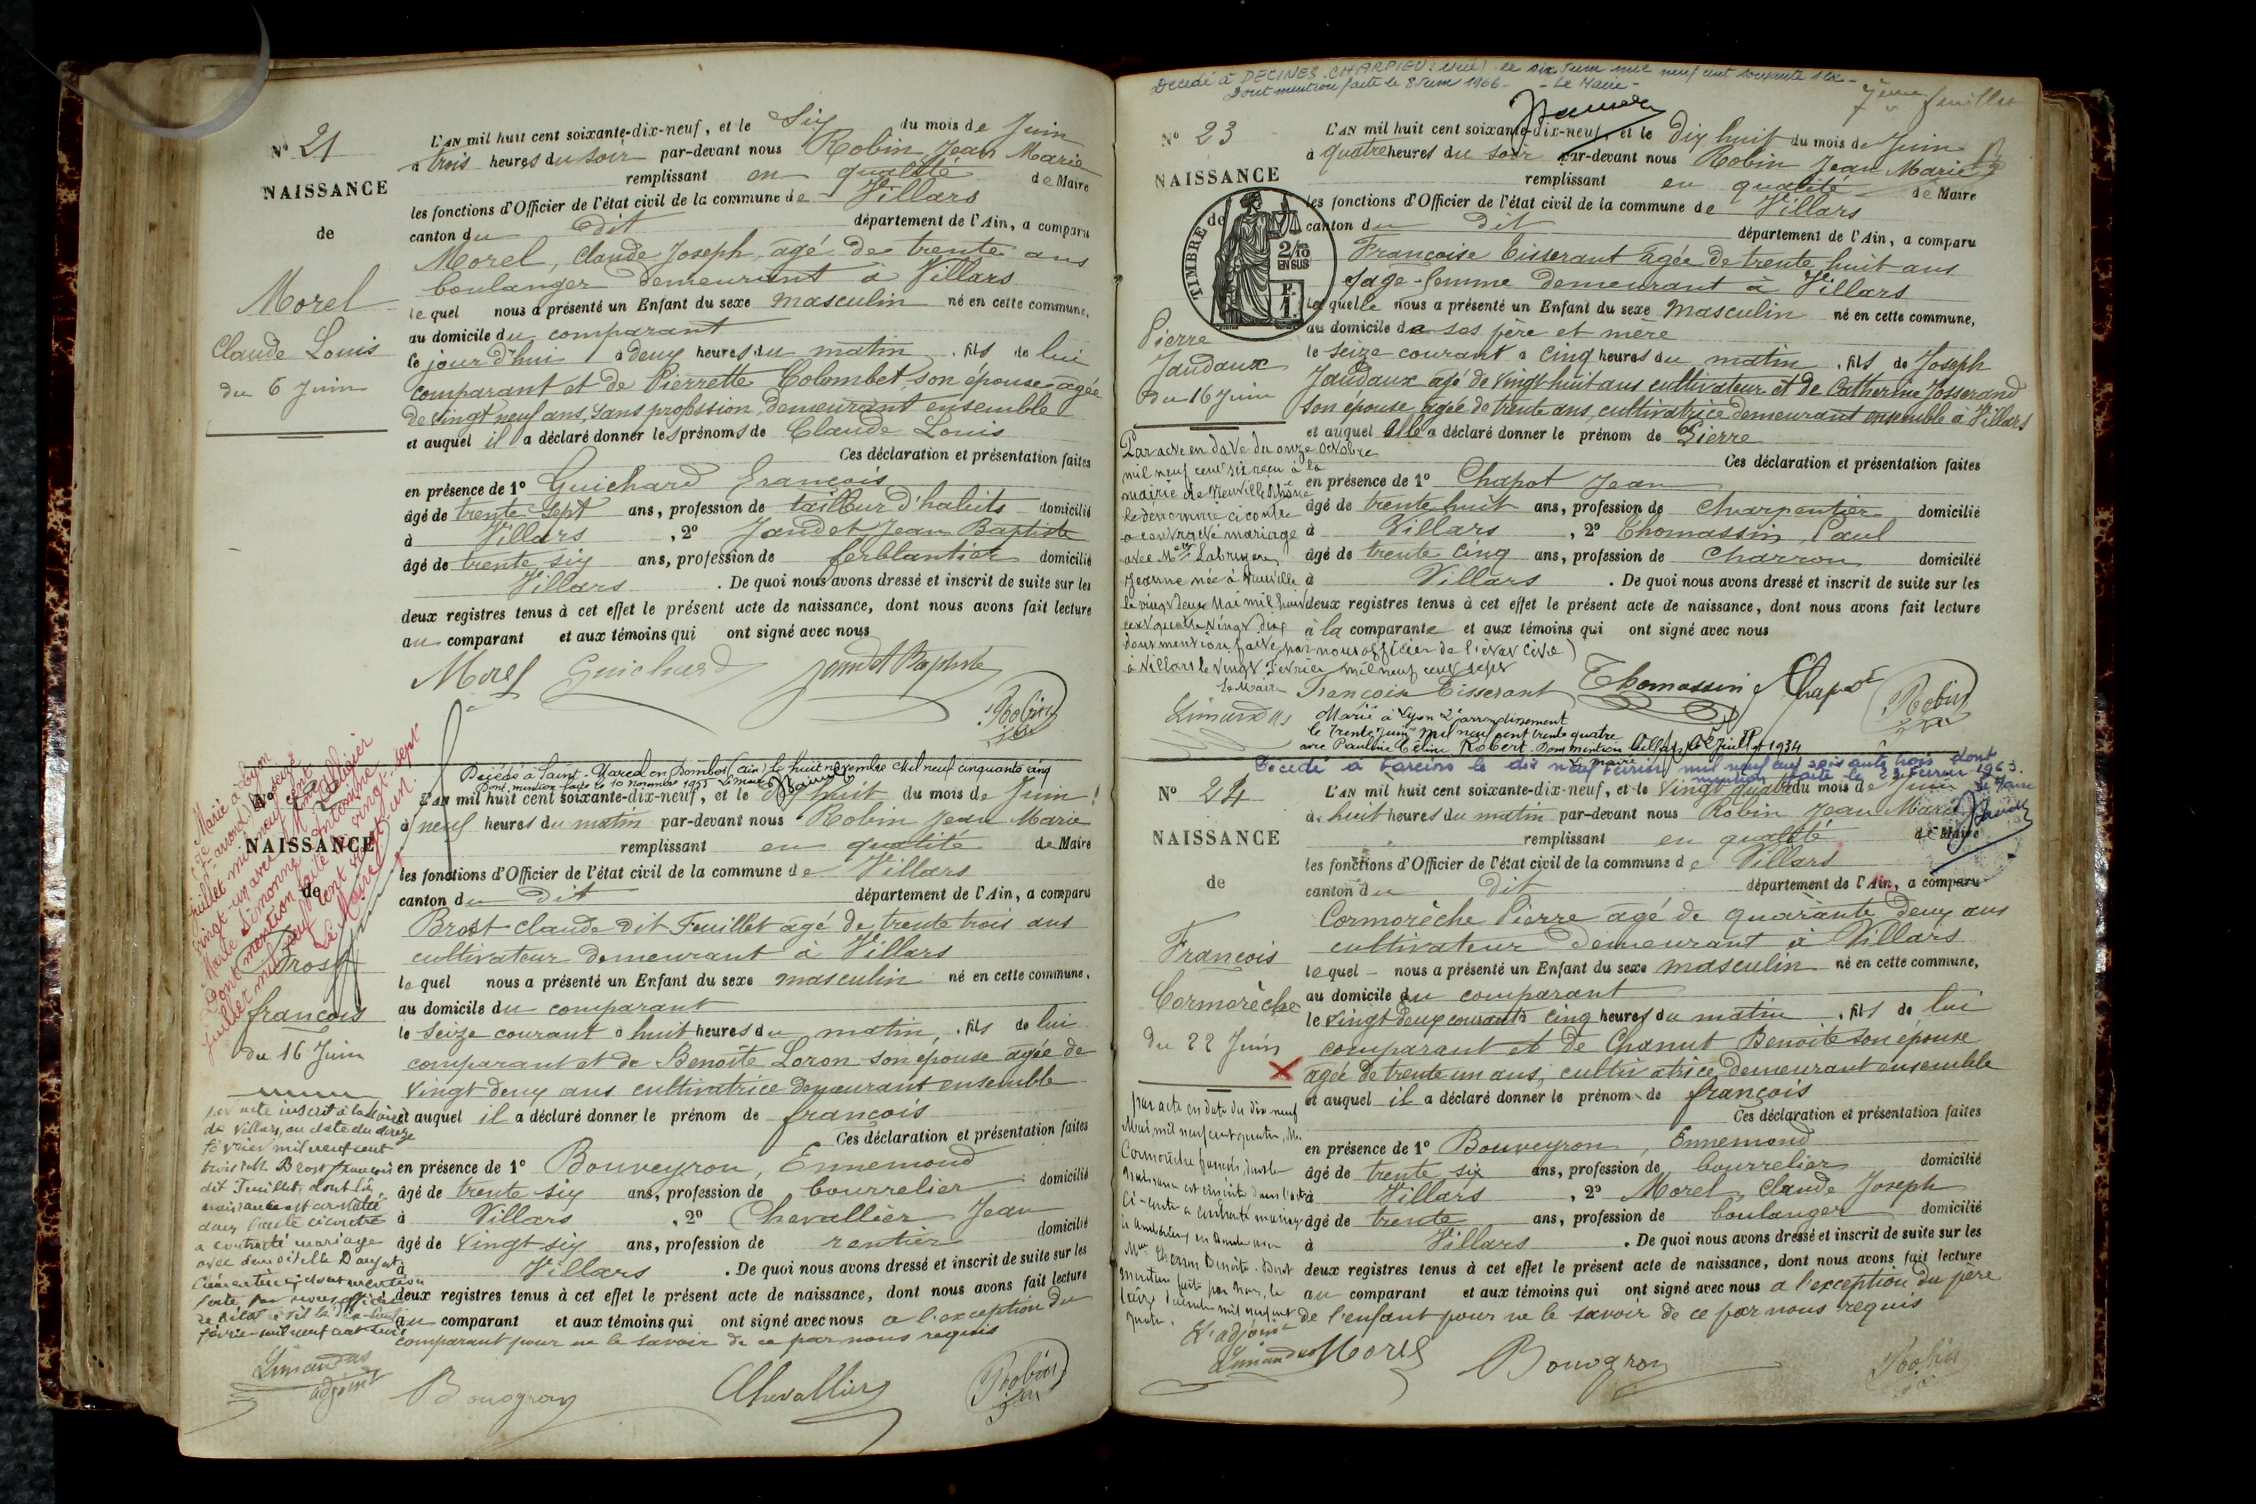 N° 21
NAISSANCE
de
Morel
Claude Louis
du 6 Juin
L'AN mil huit cent soixante-dix-neuf, et le Six du mois de Juin
à trois heures du soir par-devant nous Robin Jean Marie
remplissant en qualité de Maire
les fonctions d'Officier de l'état civil de la commune de Villars
canton du dit département de l'Ain, a comparu
Morel, Claude Joseph, agé de trente ans
boulanger demeurant à Villars
lequel nous a présenté un Enfant du sexe masculin né en cette commune,
au domicile du comparant
le jour d'hui à deux heures du matin, fils de lui
comparant et de Pierrette Colombet, son épouse agée
de vingt neuf ans, sans profession demeurant ensemble
et auquel il a déclaré donner les prénoms de Claude Louis
Ces déclaration et présentation faites
en présence de 1° Guichard François
âgé de trente sept ans, profession de tailleur d'habits domicilié
à Villars, 2° Jandet Jean Baptiste
âgé de trente six ans, profession de ferblantier domicilié
Villars. De quoi nous avons dressé et inscrit de suite sur les
deux registres tenus à cet effet le présent acte de naissance, dont nous avons fait lecture
au comparant et aux témoins qui ont signé avec nous
Morel Guichard Jandet Baptiste
Robin
Décédé à Saint-Marcel en Dombes (Ain) le huit novembre mil neuf cinquante cinq
Dont mention faite le 10 novembre 1955 Le maire
Marié à Lyon
2e arrond. le seize
juillet mil neuf cent
vingt-un avec
Marie Simonne Antoinette
Dont mention faite le vingt-sept
juillet mil neuf cent vingt-un.
Le Maire
N°
NAISSANCE
de
Brost
françois
du 16 Juin
L'AN mil huit cent soixante-dix-neuf, et le dix huit du mois de Juin
à neuf heures du matin par-devant nous Robin Jean Marie
remplissant en qualité de Maire
les fonctions d'Officier de l'état civil de la commune de Villars
canton du dit département de l'Ain, a comparu
Brost claude dit Feuillet agé de trente trois ans
cultivateur demeurant à Villars
lequel nous a présenté un Enfant du sexe masculin né en cette commune,
au domicile du comparant
le seize courant à huit heures du matin, fils de lui
comparant et de Benoîte Loron son épouse agée de
vingt deux ans cultivatrice demeurant ensemble
et auquel il a déclaré donner le prénom de françois
Ces déclaration et présentation faites
en présence de 1° Bouveyron, Ennemond
âgé de trente six ans, profession de bourrelier domicilié
à Villars, 2° Chevallier Jean
âgé de vingt six ans, profession de rentier domicilié
à Villars. De quoi nous avons dressé et inscrit de suite sur les
deux registres tenus à cet effet le présent acte de naissance, dont nous avons fait lecture
au comparant et aux témoins qui ont signé avec nous a l'exception du
comparant pour ne le savoir de ce par nous requis
Par acte inscrit à la Mairie
de Villars, en date du douze
février mil neuf cent
trois Brost françois
dit Feuillet, dont la
naissance est constatée
dans l'acte ci contre
a contracté mariage
avec demoiselle
Clémentine, dont mention
faite par nous officier
de l'état civil
février mil neuf cent trois
Limandas
adjoint
Bouvyron Chevallier Robin
Décédé à DECINES-CHARPIEU (Isère) le six Juin mil neuf cent soixante six
Dont mention faite le 8 Juin 1966 - Le Maire -
7ème feuillet
N° 23
NAISSANCE
de
TIMBRE
2/10
EN SUS
F.
1.
Pierre
Jandaux
du 16 Juin
L'AN mil huit cent soixante-dix-neuf, et le Dix huit du mois de Juin
à quatre heures du soir par-devant nous Robin Jean Marie
remplissant en qualité de Maire
les fonctions d'Officier de l'état civil de la commune de Villars
canton du dit département de l'Ain, a comparu
Françoise Tisserant agée de trente huit ans
sage-femme demeurant à Villars
laquelle nous a présenté un Enfant du sexe masculin né en cette commune,
au domicile de ses père et mère
le seize courant à cinq heures du matin, fils de Joseph
Jandaux agé de vingt huit ans cultivateur et de Catherine Josserand
son épouse, agée de trente ans, cultivatrice demeurant ensemble à Villars
et auquel elle a déclaré donner le prénom de Pierre
Ces déclaration et présentation faites
en présence de 1° Chapot Jean
âgé de trente huit ans, profession de charpentier domicilié
à Villars, 2° Thomassin Paul
âgé de trente cinq ans, profession de charron domicilié
à Villars. De quoi nous avons dressé et inscrit de suite sur les
deux registres tenus à cet effet le présent acte de naissance, dont nous avons fait lecture
à la comparante et aux témoins qui ont signé avec nous
Par acte en date du onze octobre
mil neuf cent six reçu à la
mairie de Neuville Rhône
le dénommé ci contre
a contracté mariage
avec Melle Labruyere
Jeanne née à Neuville
le vingt deux Mai mil huit
cent quatre vingt dix
dont mention faite par nous officier de l'état civil
à Villars le vingt Fevrier mil neuf cent sept
Le Maire
Limandas
Françoise Tisserant Thomassin Chapot Robin
Marié à Lyon 2e arrondissement
le trente juin mil neuf cent trente quatre
avec Pauline Céline Robert. Dont mention Villars, le 2 Juillet 1934
Le maire
Décédé à Fareins le dix neuf Février mil neuf cent soixante trois dont
mention faite le 23 Février 1963.
Le Maire
N° 24
NAISSANCE
de
François
Cormorèche
du 22 Juin
L'AN mil huit cent soixante-dix-neuf, et le vingt quatre du mois de Juin
à huit heures du matin par-devant nous Robin Jean Marie
remplissant en qualité de Maire
les fonctions d'Officier de l'état civil de la commune de Villars
canton du dit département de l'Ain, a comparu
Cormorèche Pierre agé de quarante deux ans
cultivateur demeurant à Villars
lequel nous a présenté un Enfant du sexe masculin né en cette commune,
au domicile du comparant
le vingt deux courant à cinq heures du matin, fils de lui
comparant et de Chanut Benoite son épouse
agée de trente un ans, cultivatrice demeurant ensemble
et auquel il a déclaré donner le prénom de françois
Ces déclaration et présentation faites
en présence de 1° Bouveyron, Ennemond
âgé de trente six ans, profession de bourrelier domicilié
à Villars, 2° Morel, Claude Joseph
âgé de trente ans, profession de boulanger domicilié
à Villars. De quoi nous avons dressé et inscrit de suite sur les
deux registres tenus à cet effet le présent acte de naissance, dont nous avons fait lecture
au comparant et aux témoins qui ont signé avec nous a l'exception du père
de l'enfant pour ne le savoir de ce par nous requis
par acte en date du dix neuf
Mai mil neuf cent quatre, Mr
Cormorèche françois, dont la
naissance est inscrite dans l'acte
ci-contre a contracté mariage
avec
Melle Benoite. Dont
mention faite par nous, le
mil neuf cent
quatre.
L'adjoint
Limandas Morel Bouvyron Robin